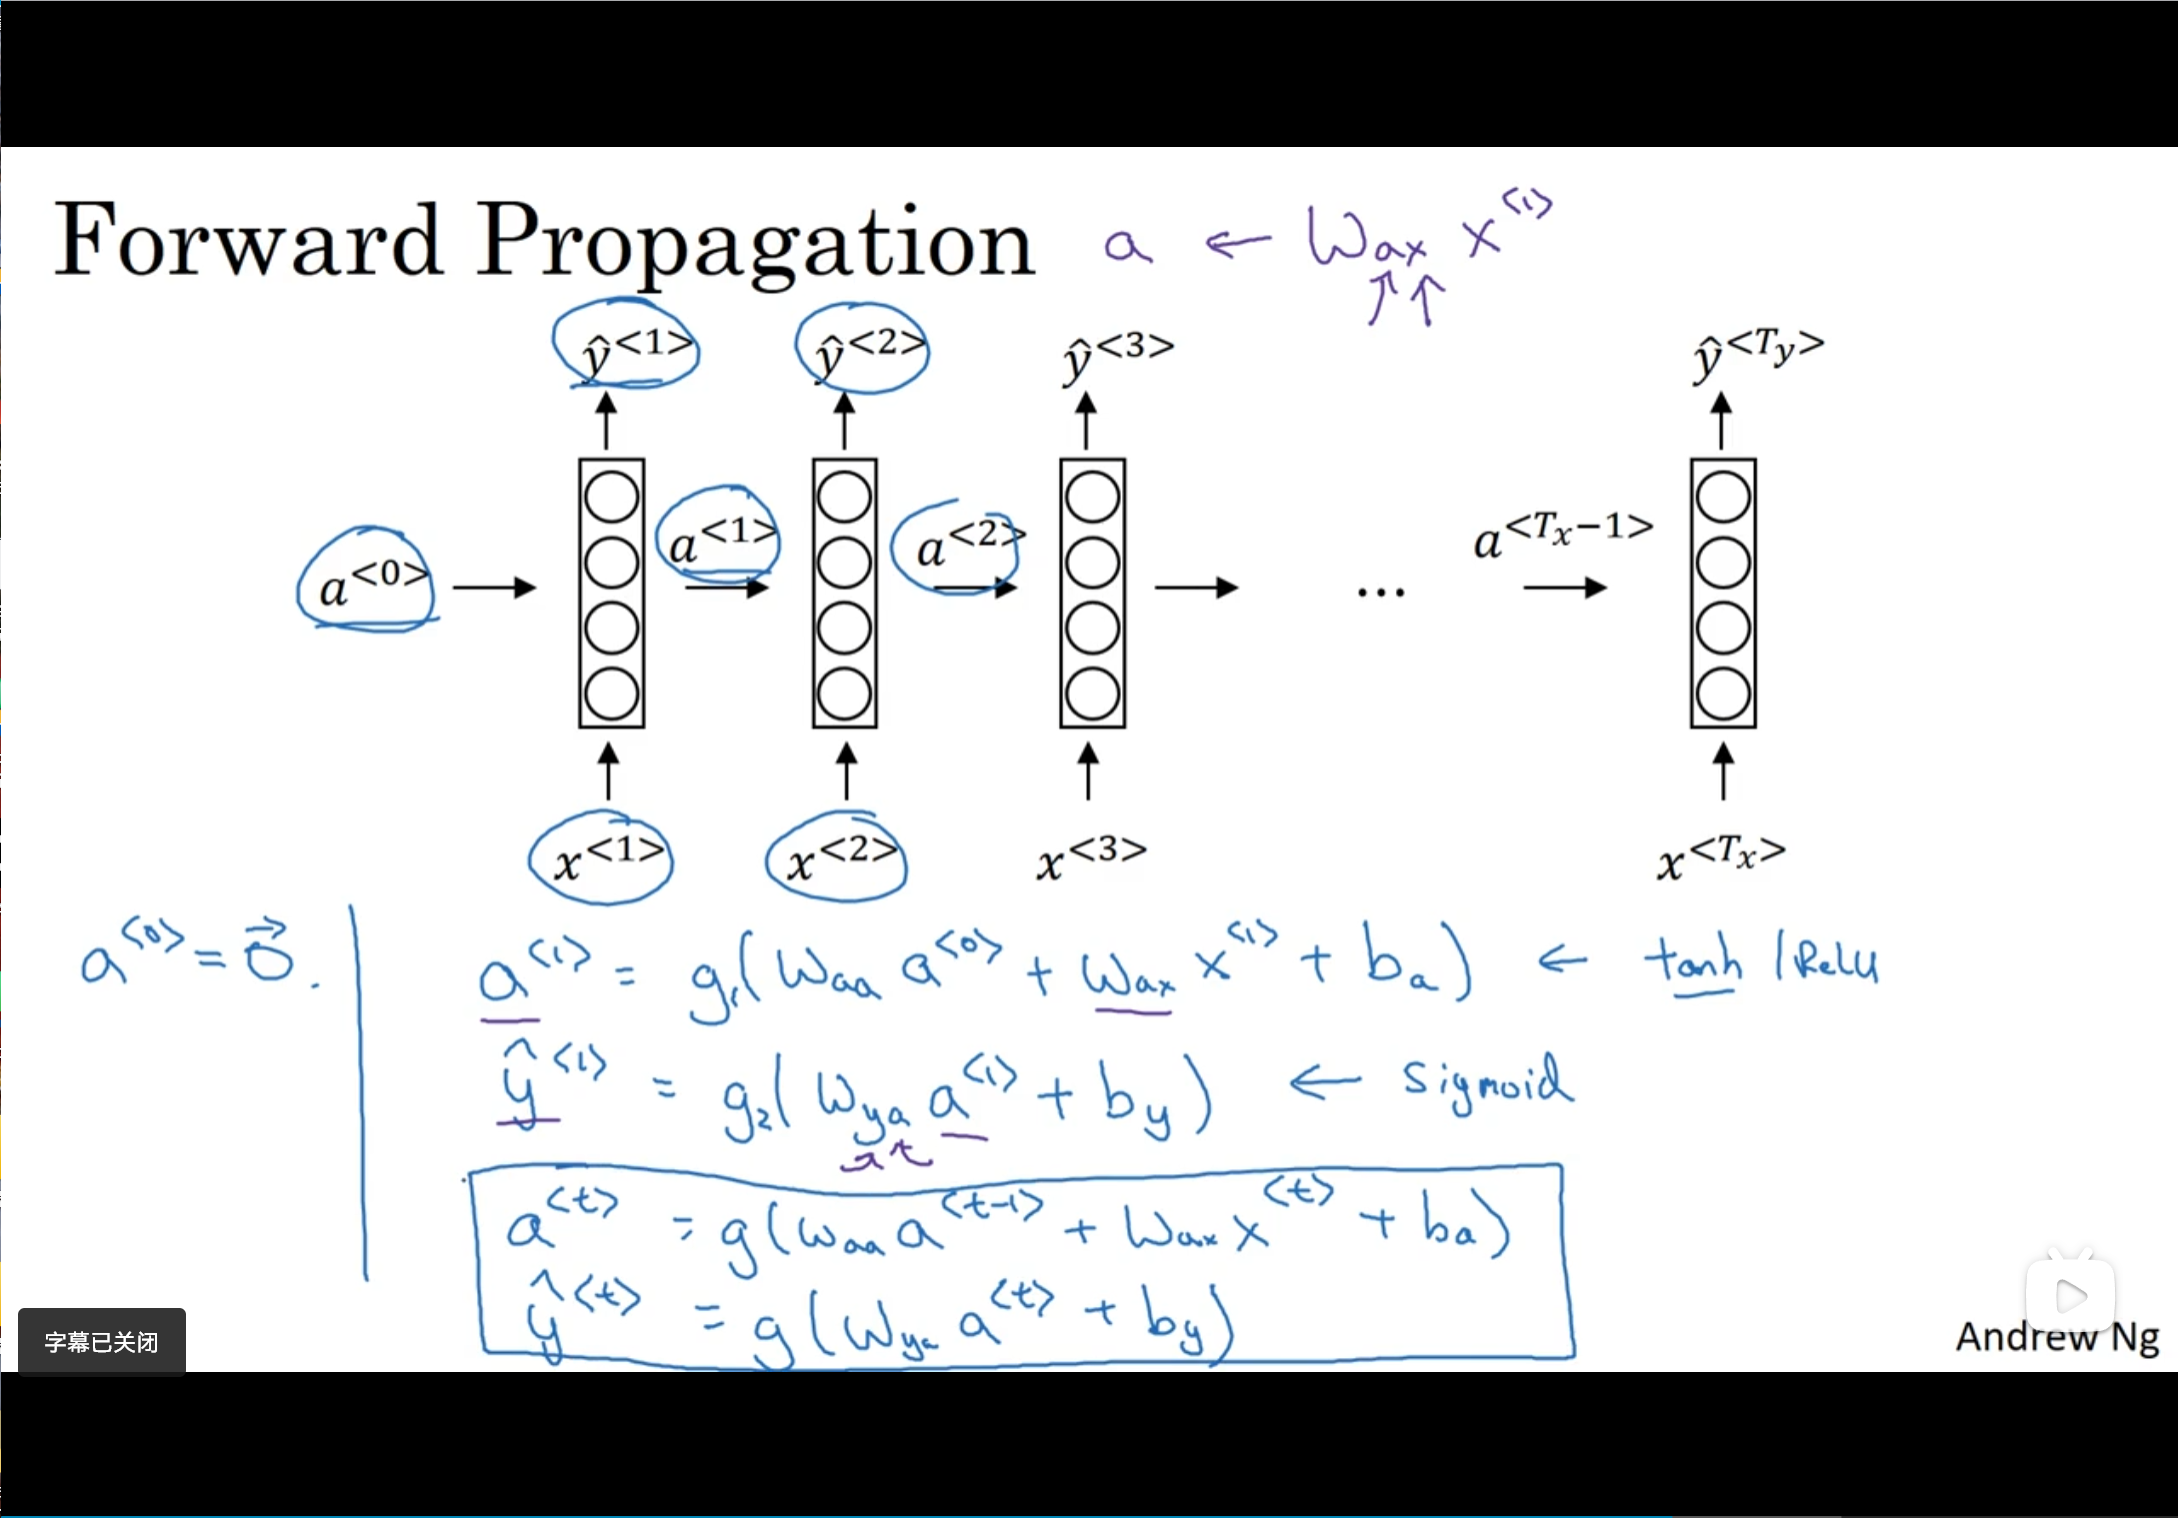 Forward Propagation a ← Wax x<1>
ŷ<1> ŷ<2> ŷ<3> ŷ<Ty>
a<0> a<1> a<2> ... a<Tx−1>
x<1> x<2> x<3> x<Tx>
a<0> = 0⃗.
a<1> = g₁(Waa a<0> + Wax x<1> + ba) ← tanh | ReLU
ŷ<1> = g₂(Wya a<1> + by) ← sigmoid
a<t> = g(Waa a<t-1> + Wax x<t> + ba)
ŷ<t> = g(Wya a<t> + by)
字幕已关闭
Andrew Ng